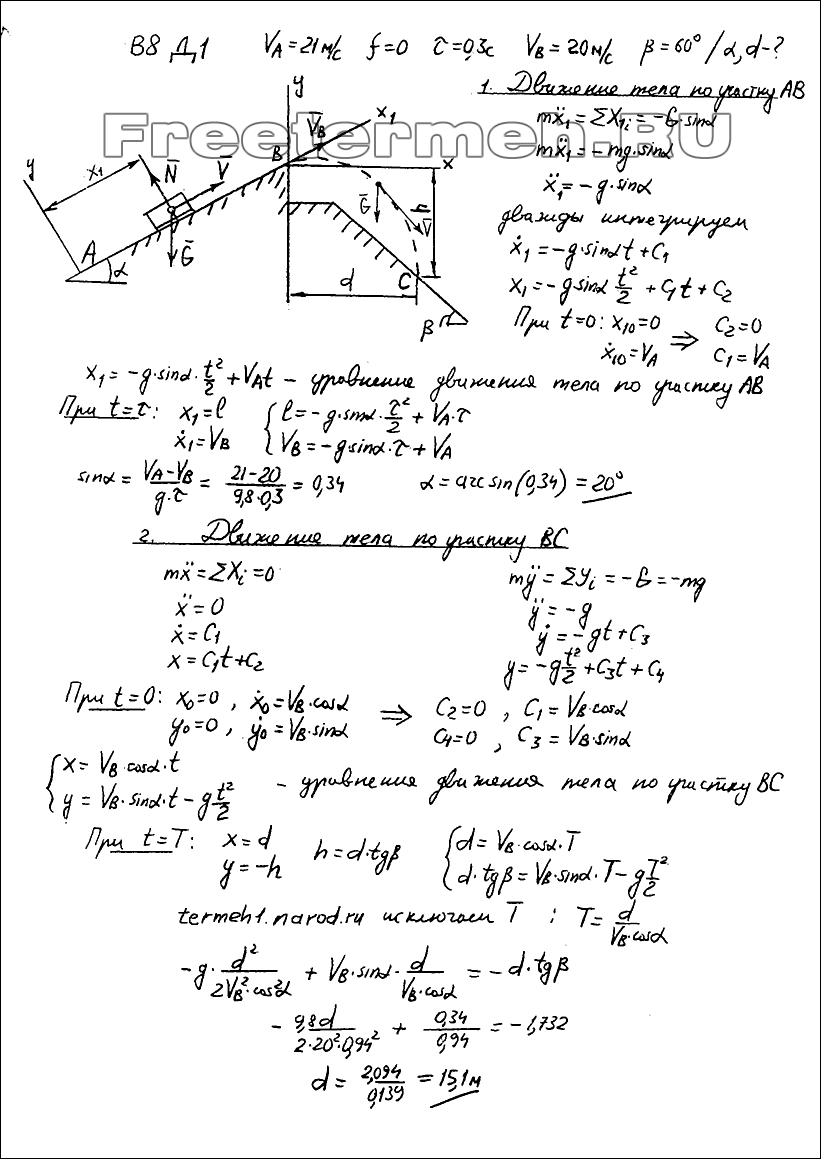 В8 Д1 VA=21м/с f=0 τ=0,3с VB=20м/с β=60° / α, d-?
1. Движение тела по участку АВ
Freetermen.RU
mẍ₁=ΣX₁ᵢ=-G·sinα
mẍ₁=-mg·sinα
ẍ₁=-g·sinα
дважды интегрируем
ẋ₁=-g·sinα t+C₁
x₁=-g sinα t²/2 + C₁t+C₂
При t=0: x₁₀=0 ⇒ C₂=0
ẋ₁₀=VA C₁=VA
y
x₁
V̄B
B
x
y
x₁
N̄
V̄
Ḡ
h
V̄
A
α
Ḡ
d
C
β
x₁=-g·sinα·t²/2+VAt – уравнение движения тела по участку АВ
При t=τ: x₁=l { l=-g·sinα·τ²/2+VA·τ
ẋ₁=VB { VB=-g·sinα·τ+VA
sinα = (VA-VB)/(g·τ) = (21-20)/(9,8·0,3) = 0,34 α=arcsin(0,34)=20°
2. Движение тела по участку ВС
mẍ=ΣXᵢ=0 mÿ=ΣYᵢ=-G=-mg
ẍ=0 ÿ=-g
ẋ=C₁ ẏ=-gt+C₃
x=C₁t+C₂ y=-gt²/2+C₃t+C₄
При t=0: x₀=0, ẋ₀=VB·cosα ⇒ C₂=0, C₁=VB·cosα
y₀=0, ẏ₀=VB·sinα C₄=0, C₃=VB·sinα
{ x=VB·cosα·t
{ y=VB·sinα·t-gt²/2 – уравнения движения тела по участку ВС
При t=T: x=d h=d·tgβ { d=VB·cosα·T
y=-h { d·tgβ=VB·sinα·T-gT²/2
termeh1.narod.ru исключаем T : T=d/(VB·cosα)
-g·d²/(2VB²·cos²α) + VB·sinα·d/(VB·cosα) = -d·tgβ
-9,8d/(2·20²·0,94²) + 0,34/0,94 = -1,732
d = 2,094/0,139 = 15,1м